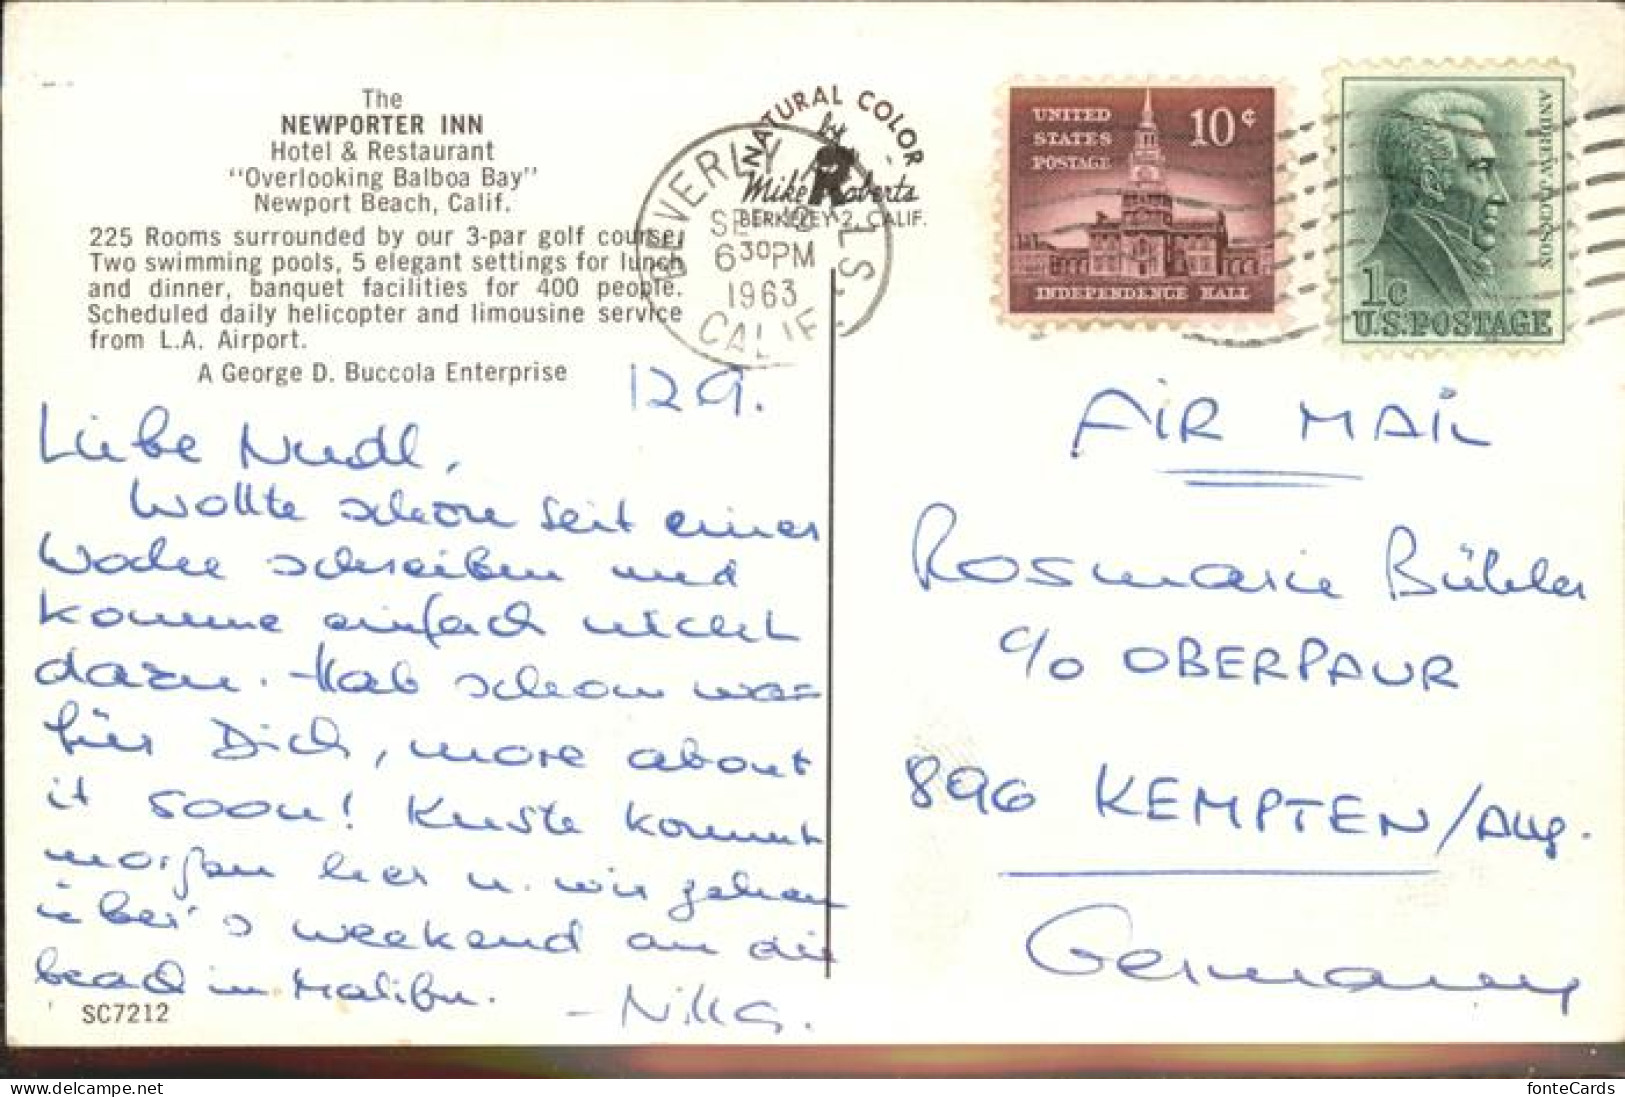 The
NEWPORTER INN
Hotel & Restaurant
"Overlooking Balboa Bay"
Newport Beach, Calif.
225 Rooms surrounded by our 3-par golf course,
Two swimming pools, 5 elegant settings for lunch
and dinner, banquet facilities for 400 people.
Scheduled daily helicopter and limousine service
from L.A. Airport.
A George D. Buccola Enterprise
NATURAL COLOR
Mike Roberts
BERKELEY 2, CALIF.
BEVERLY HILLS.
SEP 12
6 30PM
1963
CALIF
UNITED
STATES
POSTAGE
10¢
INDEPENDENCE HALL
ANDREW JACKSON
1c
U.S. POSTAGE
12.9.
Liebe Nudl,
wollte schon seit einer
Woche schreiben und
komme einfach nicht
dazu. Hab schon was
für Dich, more about
it soon! Küste kommt
morgen her u. wir gehen
über's weekend an die
beach in Malibu.
SC7212
AIR MAIL
Rosmarie Bühler
c/o OBERPAUR
896 KEMPTEN/Allg.
Germany
fonteCards